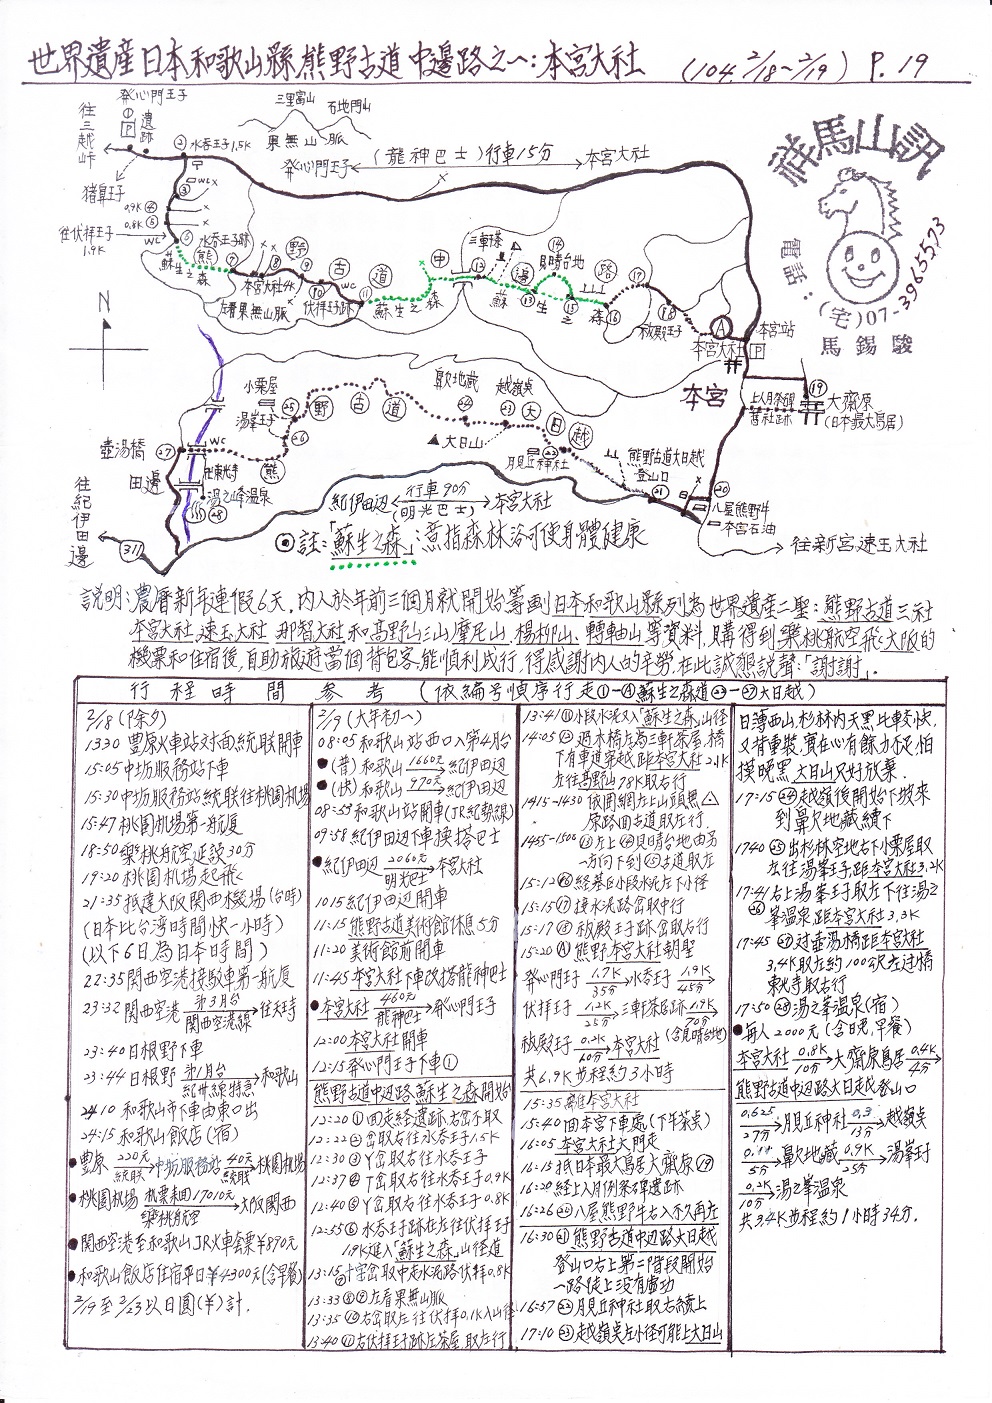 世界遺產日本和歌山縣熊野古道中邊路之一:本宮大社 (104. 2/18~2/19) P. 19
祥馬山訊
電話:(宅)07-3965573
馬錫駿
往三越峠
發心門王子
遺跡
P
水呑王子1.5K
三里富山
石地門山
果無山脈
發心門王子 (龍神巴士)行車15分 本宮大社
猪鼻王子
0.9K
0.8K
往伏拝王子
1.9K
WC
水呑王子跡
蘇生之森
熊野古道
本宮大社
左看果無山脈
伏拝王子跡
WC
蘇生之森
中邊路
三軒茶
見晴台地
蘇生之森
祓殿王子
本宮大社
本宮站
P
本宮
N
小栗屋
湯峯王子
野古道
鼻欠地蔵
越嶺吳
大日越
大日山
月見丘神社
熊野古道大日越
登山口
上八月祭碑
舊社跡
大齋原
(日本最大鳥居)
壺湯橋
WC
熊
東光寺
湯之峰溫泉
田邊
往紀伊田邊
311
紀伊田辺 行車90分 本宮大社
(明光巴士)
八屋熊野牛
本宮石油
往新宮.速玉大社
註:「蘇生之森」:意指森林浴可使身體健康
說明:農曆新年連假6天,內人於年前三個月就開始籌劃日本和歌山縣列為世界遺產二聖:熊野古道三社
本宮大社.速玉大社.那智大社和高野山三山摩尼山、楊柳山、轉軸山等資料,購得到樂桃航空飛大阪的
機票和住宿後,自助旅遊當個背包客,能順利成行,得感謝內人的辛勞,在此誠懇說聲:「謝謝」.
行程時間參考 (依編號順序行走①-Ⓐ蘇生之森道㉒-㉗大日越)
2/18 (下除夕)
1330 豊原火車站対面統联開車
15:05 中坊服務站下車
15:30 中坊服務站統联往桃園机場
15:47 桃園机場第一航厦
18:50 樂桃航空延誤30分
19:20 桃園机場起飛
21:35 抵達大阪関西機場(台時)
(日本比台湾時間快一小時)
(以下6日為日本時間)
22:35 関西空港接駁車第一航厦
23:32 関西空港 第3月台 関西空港線 往天時
23:40 日根野下車
23:44 日根野 第1月台 紀州線特急 和歌山
2410 和歌山市下車由東口出
24:15 和歌山飯店(宿)
●豊原 220元 統联 中坊服務站 40元 統联 桃園机場
●桃園机場 机票来回17010元 樂桃航空 大阪関西
●関西空港至和歌山JR火車套票¥890元
●和歌山飯店住宿平日¥4300元(含早餐)
2/9至2/23以日圓(¥)計.
2/9 (大年初一)
08:05 和歌山站西口入第4月台
●(普)和歌山 1660元 紀伊田辺
●(快)和歌山 970元 紀伊田辺
08:53 和歌山站開車(JR紀勢線)
09:58 紀伊田辺下車換搭巴士
●紀伊田辺 2060元 明光巴士 本宮大社
1015 紀伊田辺開車
11:15 熊野古道美術館休息5分
11:20 美術館前開車
11:45 本宮大社下車改搭龍神巴士
●本宮大社 460元 龍神巴士 発心門王子
12:00 本宮大社開車
12:15 発心門王子下車①
熊野古道中辺路.蘇生之森開始
12:20 ①回走経遺跡.右岔下取
12:22 ②岔取右往水呑王子1.5K
12:30 ③Y岔取右往水呑王子
12:37 ④T岔取右往水呑王子0.9K
12:40 ⑤Y岔取右往水呑王子0.8K
12:55 ⑥水呑王子跡在左往伏拝王子
1.9K進入「蘇生之森」山径道
13:15 ⑦十字岔取中走水泥路伏拝0.8K
13:33 ⑧⑨左看果無山脈
13:35 ⑩右岔取左往伏拝0.1K入山徑
13:40 ⑪右伏拝王子跡.左茶屋.取左行
13:41 ⑪小段水泥又入「蘇生之森」山径
14:05 ⑫過木桥左為三軒茶屋.橋
下有車道穿越.距本宮大社2.1K
左往高野山78K取右行
1415-1430 依圍網左上山頭黑△
原路回古道取左行.
1455-1500 ⑬左上⑭見晴台地由另
一方向下到⑮古道取左
15:12 ⑯経墓丘小段水泥左下小径
15:15 ⑰接水泥路岔取中行
15:17 ⑱祓殿王子跡岔取右行
15:20 Ⓐ熊野本宮大社朝聖
発心門王子 1.7K 35分 水呑王子 1.9K 45分
伏拝王子 1.2K 25分 三軒茶居跡 1.9K 70分 (含見晴台地)
祓殿王子 0.2K 60分 本宮大社
共6.9K步程約3小時
15:35 離本宮大社
15:40 回本宮下車處(下午茶点)
16:05 本宮大社大門走
16:13 抵日本最大鳥居大齋原⑲
16:20 経上八月例祭碑遺跡
16:26 ⑳八屋熊野牛右入不久再左
16:30 ㉑熊野古道中辺路大日越
登山口右上第二階段開始
一路徒上没有虛功
16:57 ㉒月見丘神社取右續上
17:10 ㉓越嶺吳左小径可能上大日山
日薄西山,杉林内天黑比車較快,
又背重裝,實在心有餘力不足,怕
摸晚黑,大日山只好放棄.
17:15 ㉔越嶺後開始下坡来
到鼻欠地蔵續下
1740 ㉕出杉林空地右下小栗屋取
左往湯峯王子.距本宮大社3.2K
17:41 右上湯峯王子取左下往湯之
㉖峯溫泉.距本宮大社3.3K
17:45 ㉗対壺湯橋.距本宮大社
3.4K取左約100公尺左过橋
東光寺取右行
17:50 ㉘湯之峯溫泉(宿)
●每人2000元(含日㿝,早餐)
本宮大社 0.8K 10分 大齋原鳥居 0.4K 4分
熊野古道中辺路大日越登山口
0.625 27分 月見丘神社 0.3 13分 越嶺吳
5分 鼻欠地蔵 0.9K 25分 湯峯王子
0.2K 10分 湯之峯溫泉
共3.4K步程約1小時34分.